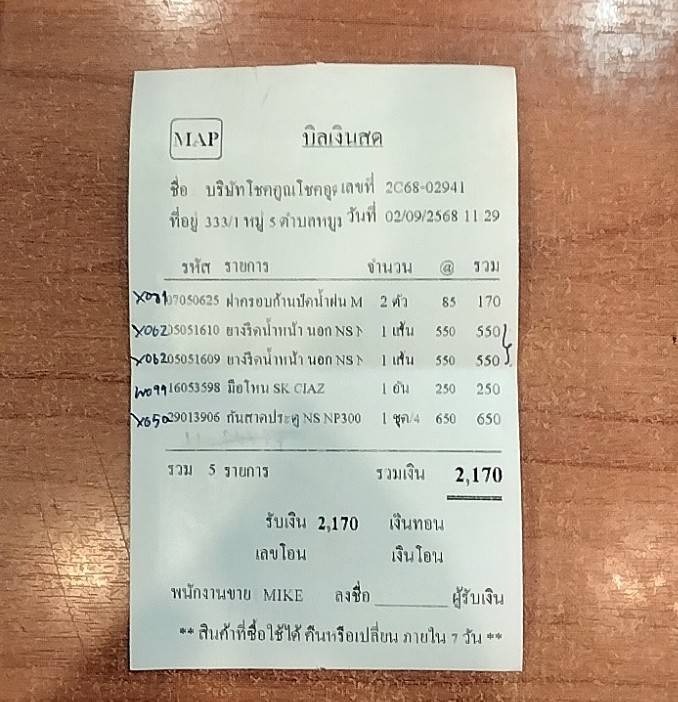 MAP บิลเงินสด
ชื่อ บริษัทโชคคูณโชคอุ เลขที่ 2C68-02941
ที่อยู่ 333/1 หมู่ 5 ตำบลหมูง วันที่ 02/09/2568 11 29
รหัส รายการ จำนวน @ รวม
07050625 ฝาครอบก้านปัดน้ำฝน M 2 ตัว 85 170
X062 05051610 ยางรีดน้ำหน้า นอก NS 1 เส้น 550 550
X062 05051609 ยางรีดน้ำหน้า นอก NS 1 เส้น 550 550
W099 16053598 มือโหน SK CIAZ 1 อัน 250 250
X650 29013906 กันสาดประตู NS NP300 1 ชุด/4 650 650
รวม 5 รายการ รวมเงิน 2,170
รับเงิน 2,170 เงินทอน
เลขโอน เงินโอน
พนักงานขาย MIKE ลงชื่อ ________ ผู้รับเงิน
** สินค้าที่ซื้อใช้ได้ คืนหรือเปลี่ยน ภายใน 7 วัน **